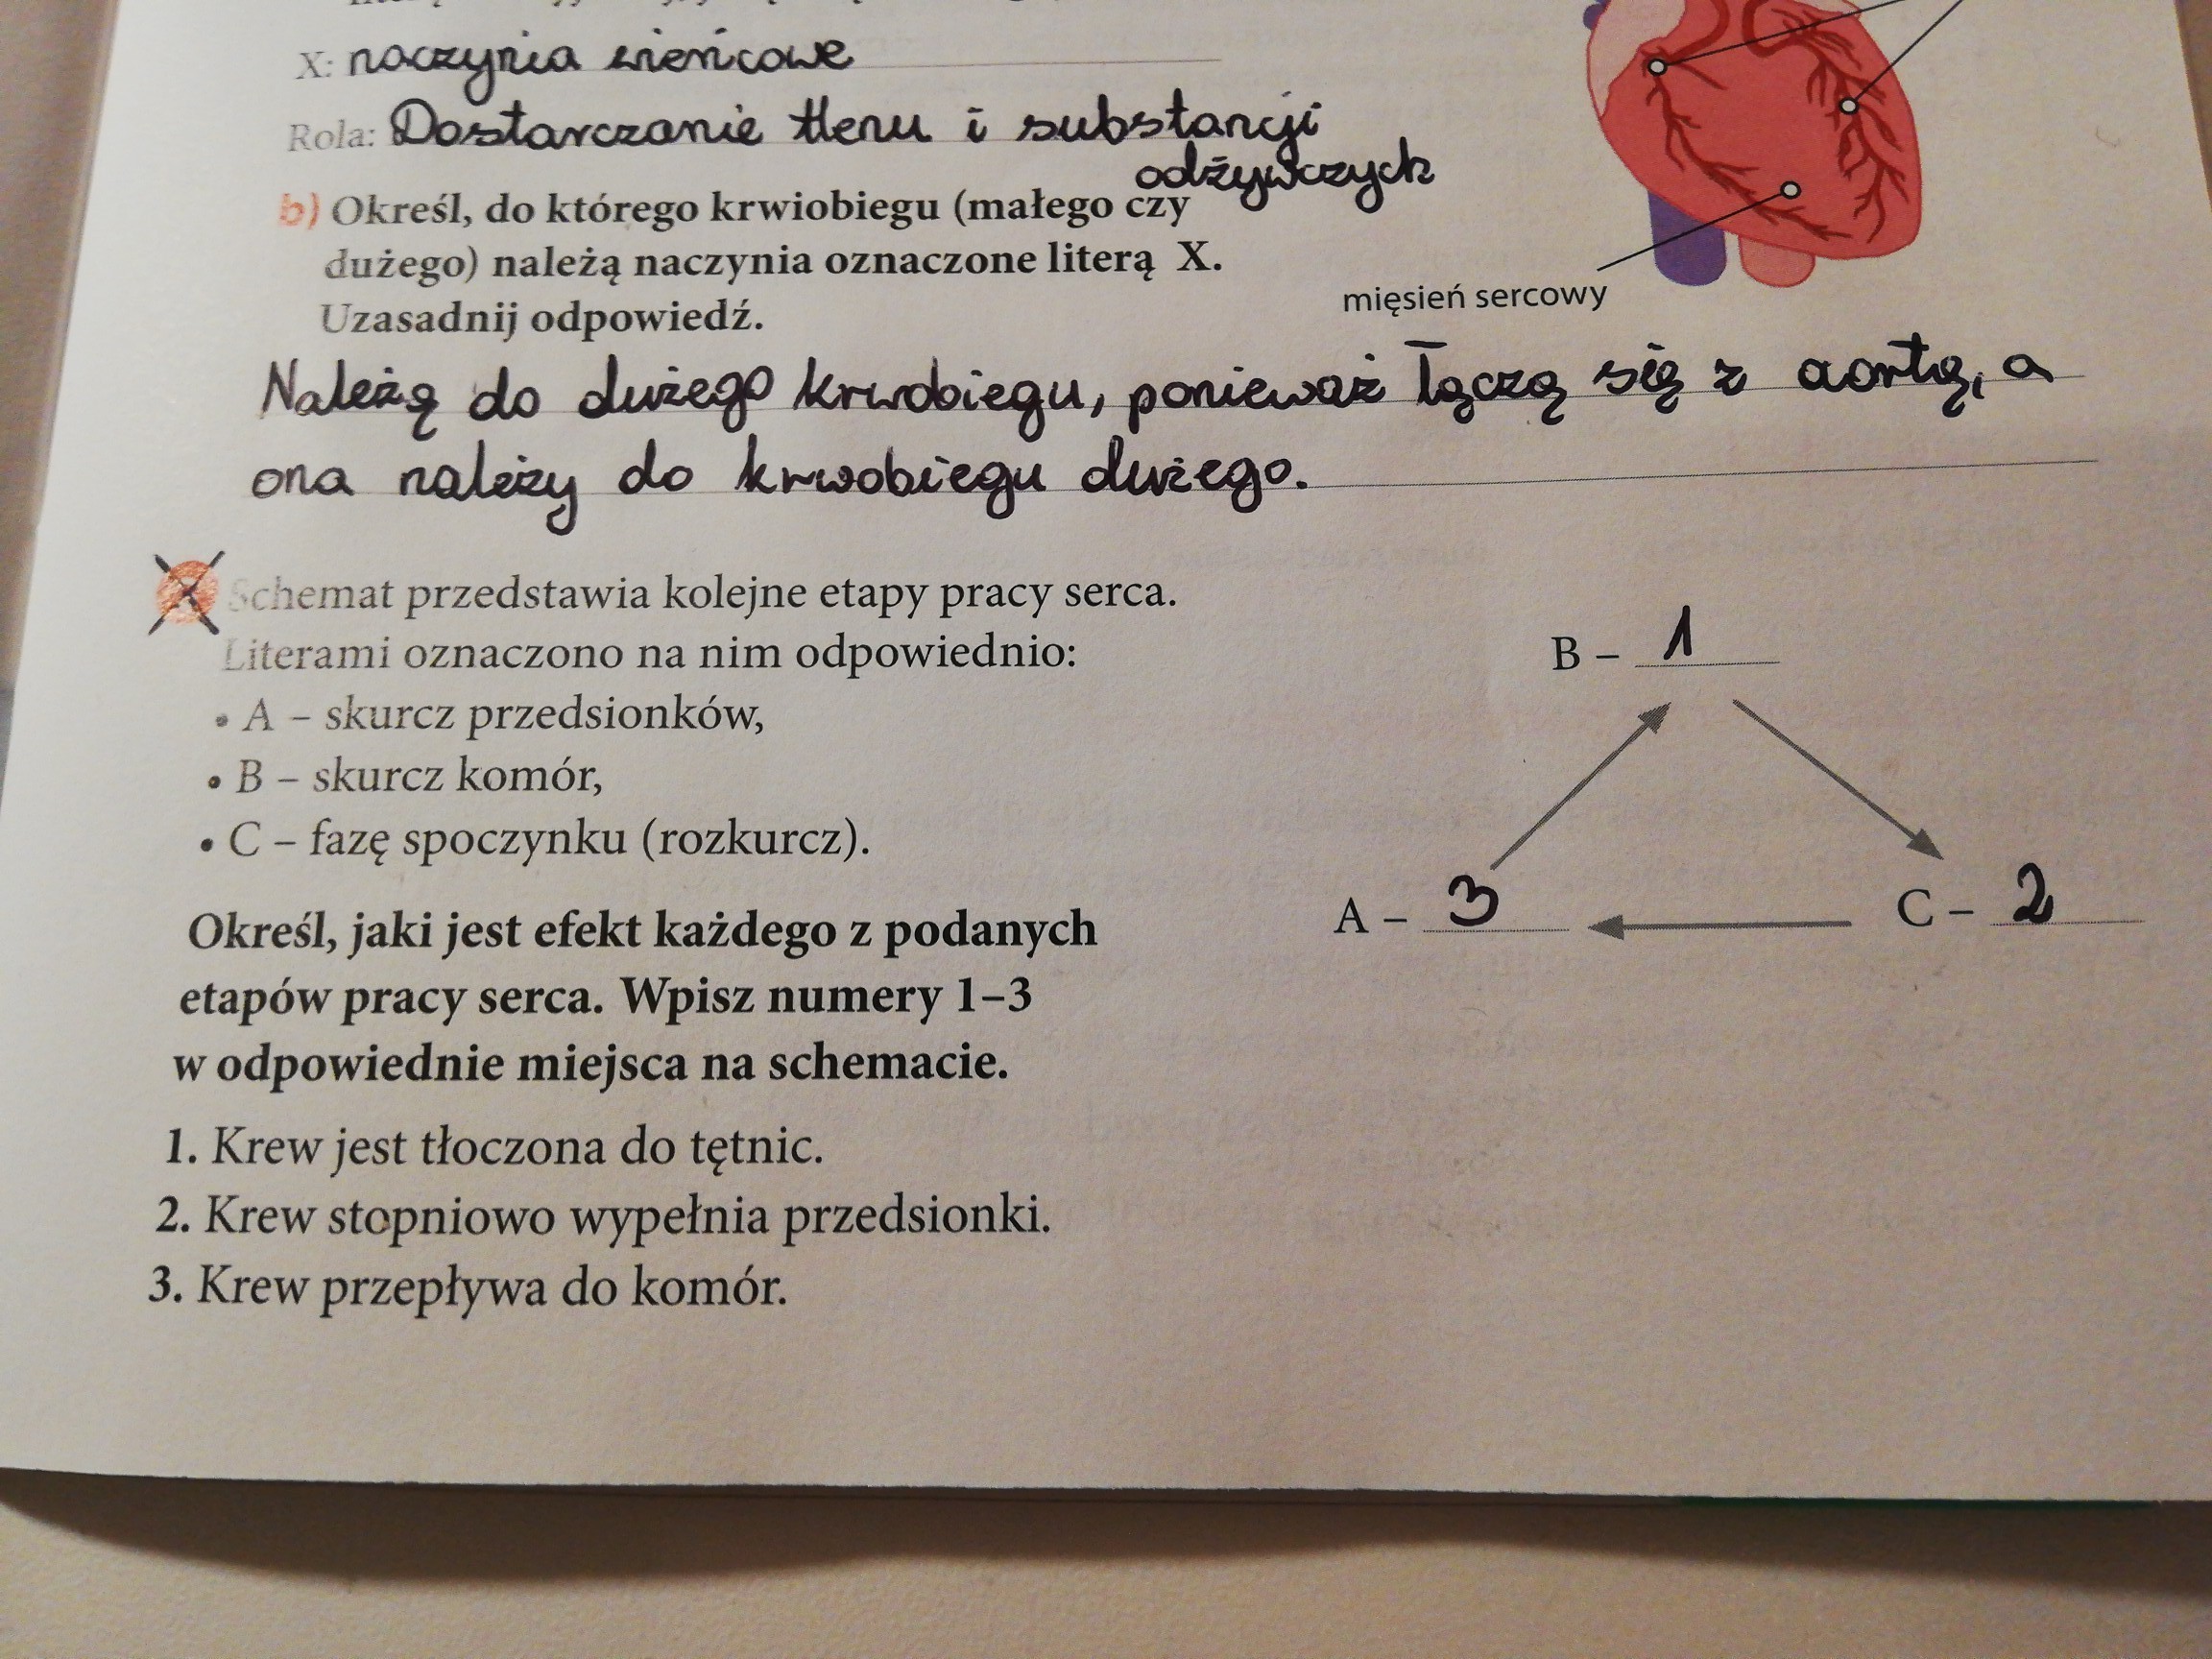 X: naczynia wieńcowe
Rola: Dostarczanie tlenu i substancji
odżywczych
b) Określ, do którego krwiobiegu (małego czy
dużego) należą naczynia oznaczone literą X.
Uzasadnij odpowiedź.
mięsień sercowy
Należą do dużego krwobiegu, ponieważ łączą się z aortą, a
ona należy do krwobiegu dużego.
Schemat przedstawia kolejne etapy pracy serca.
Literami oznaczono na nim odpowiednio:
• A – skurcz przedsionków,
• B – skurcz komór,
• C – fazę spoczynku (rozkurcz).
B – 1
A – 3
C – 2
Określ, jaki jest efekt każdego z podanych
etapów pracy serca. Wpisz numery 1–3
w odpowiednie miejsca na schemacie.
1. Krew jest tłoczona do tętnic.
2. Krew stopniowo wypełnia przedsionki.
3. Krew przepływa do komór.